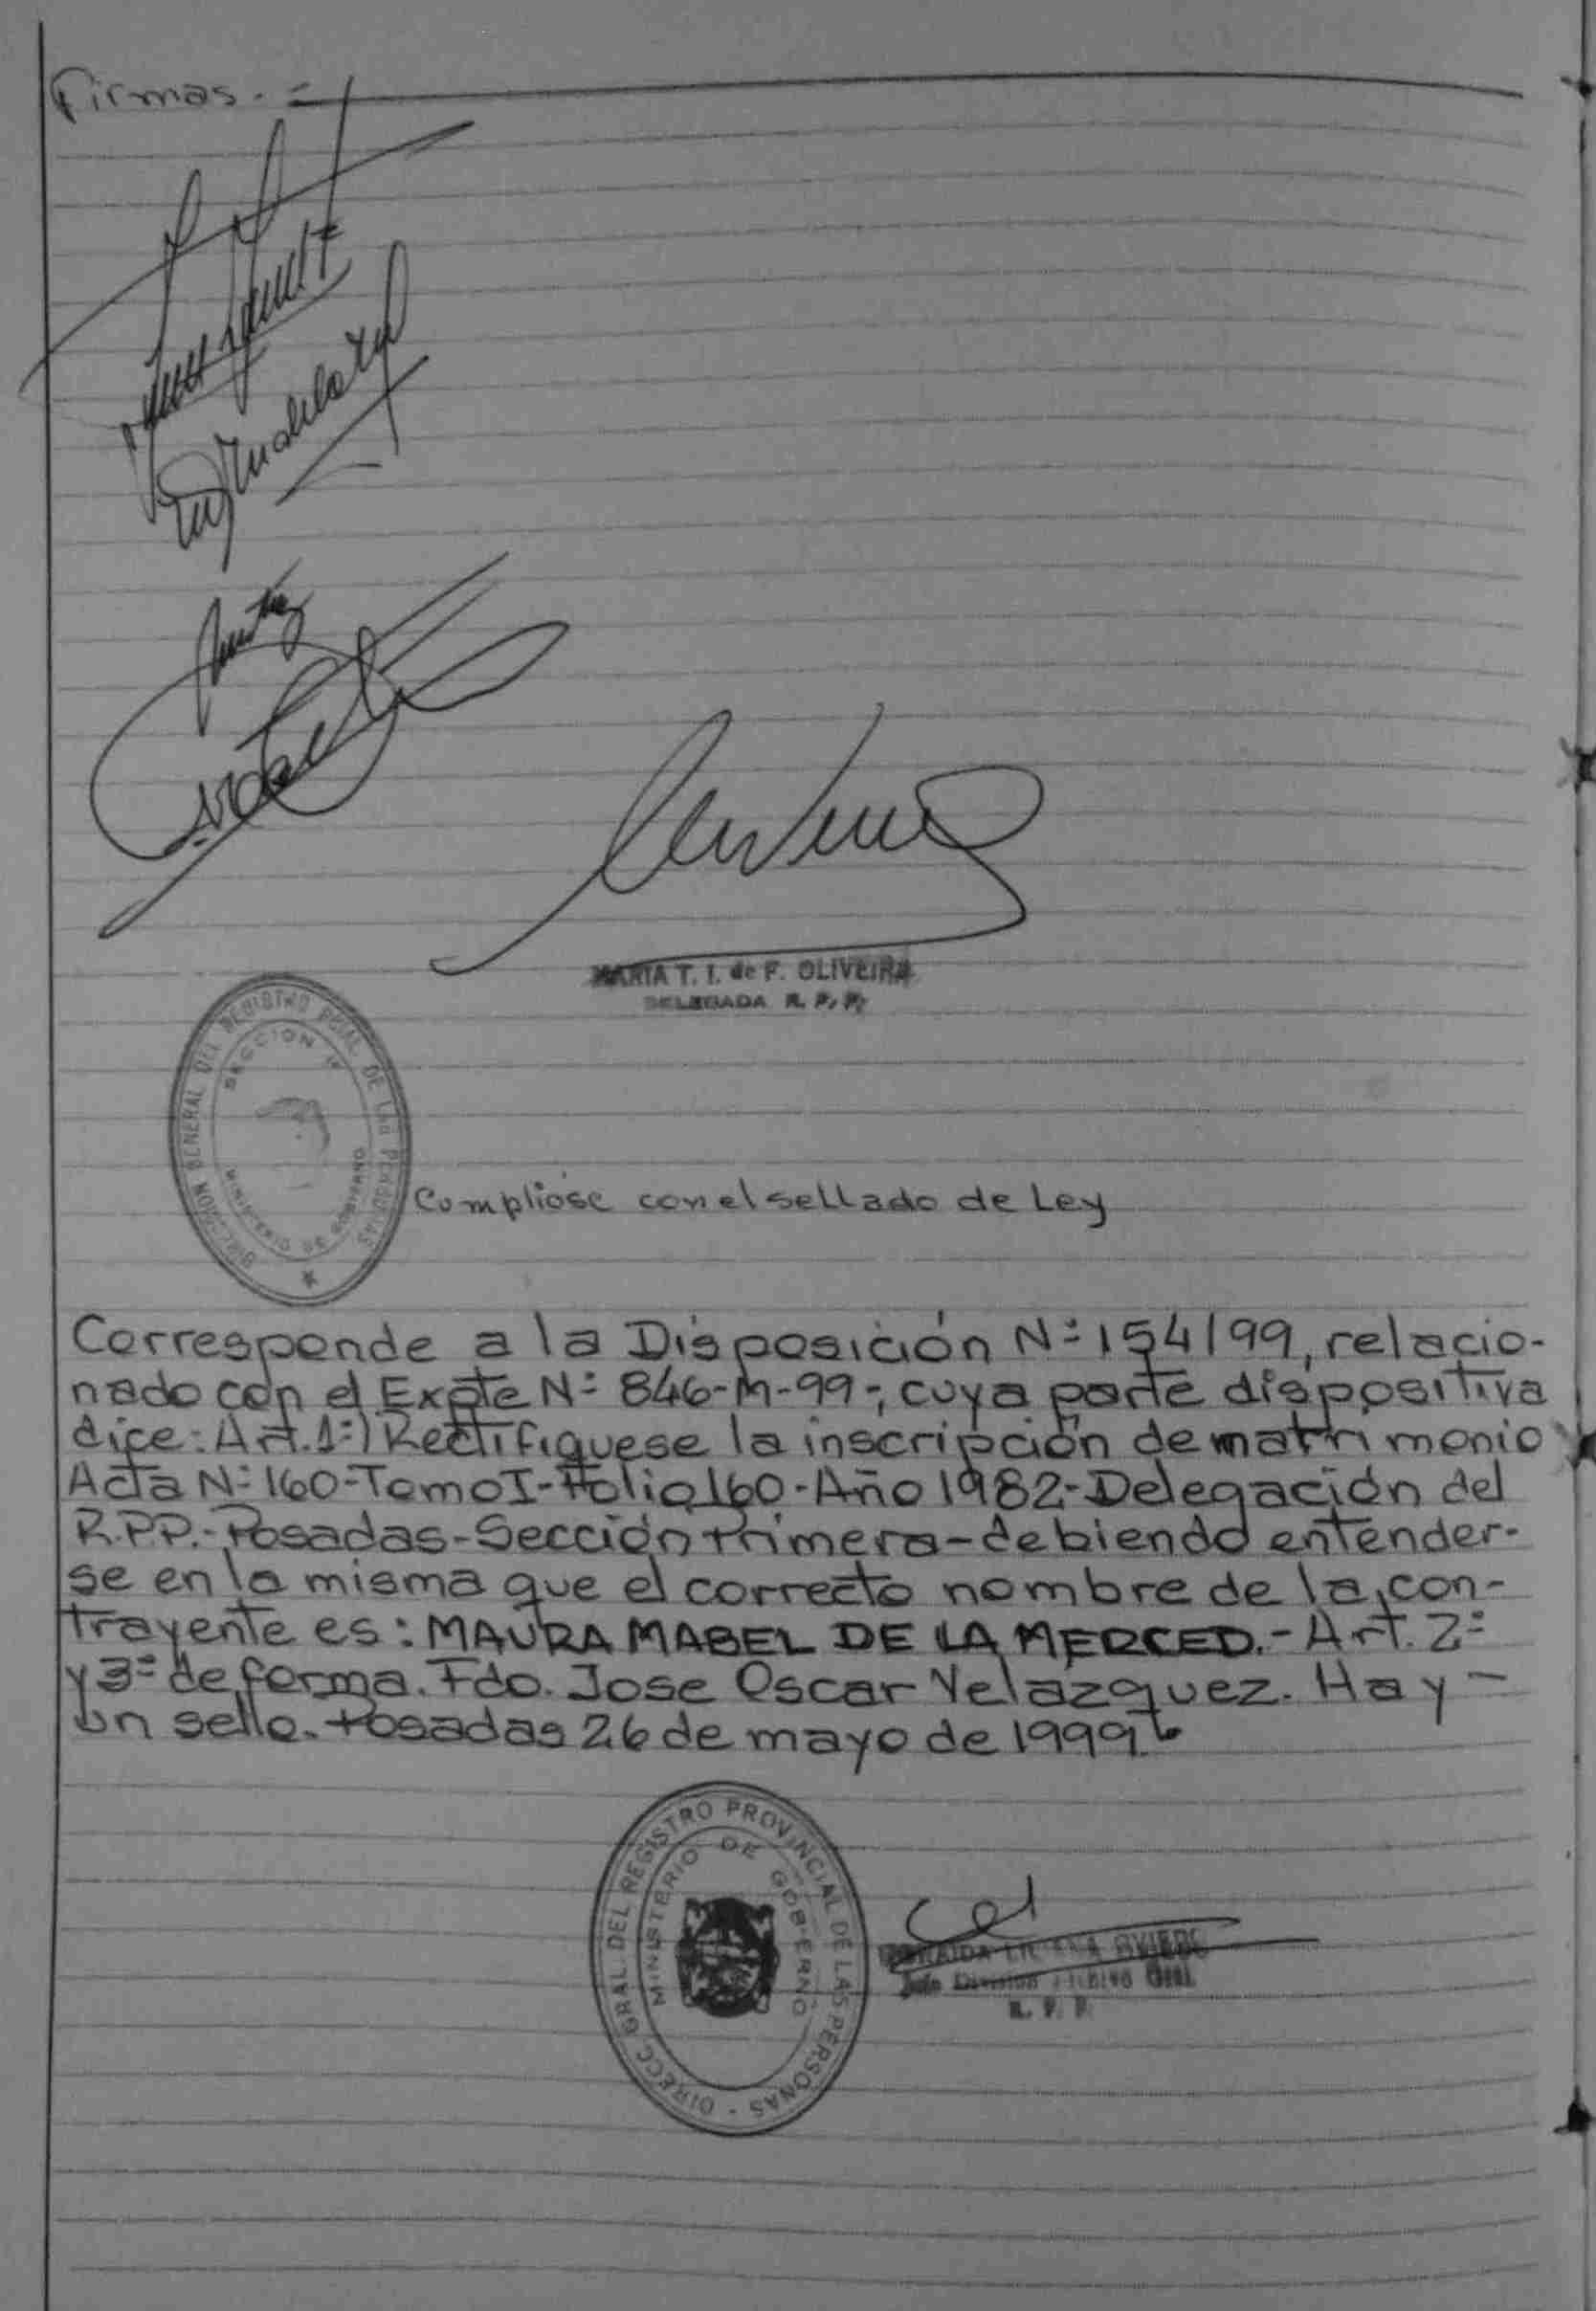 Firmas.-
MARIA T. I. de F. OLIVEIRA
DELEGADA R. P. P.
DIRECCION GENERAL DEL REGISTRO PCIAL. DE LAS PERSONAS
SECCION
MINISTERIO DE GOBIERNO
Cumpliose con el sellado de Ley
Corresponde a la Disposición Nº 154/99, relacio-
nado con el Expte Nº 846-M-99-, cuya parte dispositiva
dice: Art. 1º) Rectifiquese la inscripción de matrimonio
Acta Nº 160-Tomo I-Folio 160-Año 1982-Delegación del
R.P.P.-Posadas-Sección Primera-debiendo entender-
se en la misma que el correcto nombre de la con-
trayente es: MAURA MABEL DE LA MERCED.- Art. 2º
y 3º de forma. Fdo. Jose Oscar Velazquez. Hay-
un sello. Posadas 26 de mayo de 1999
DIRECC. GRAL. DEL REGISTRO PROVINCIAL DE LAS PERSONAS -
MINISTERIO DE GOBIERNO
OVIEDO
Jefe Division Archivo Gral.
R. P. P.